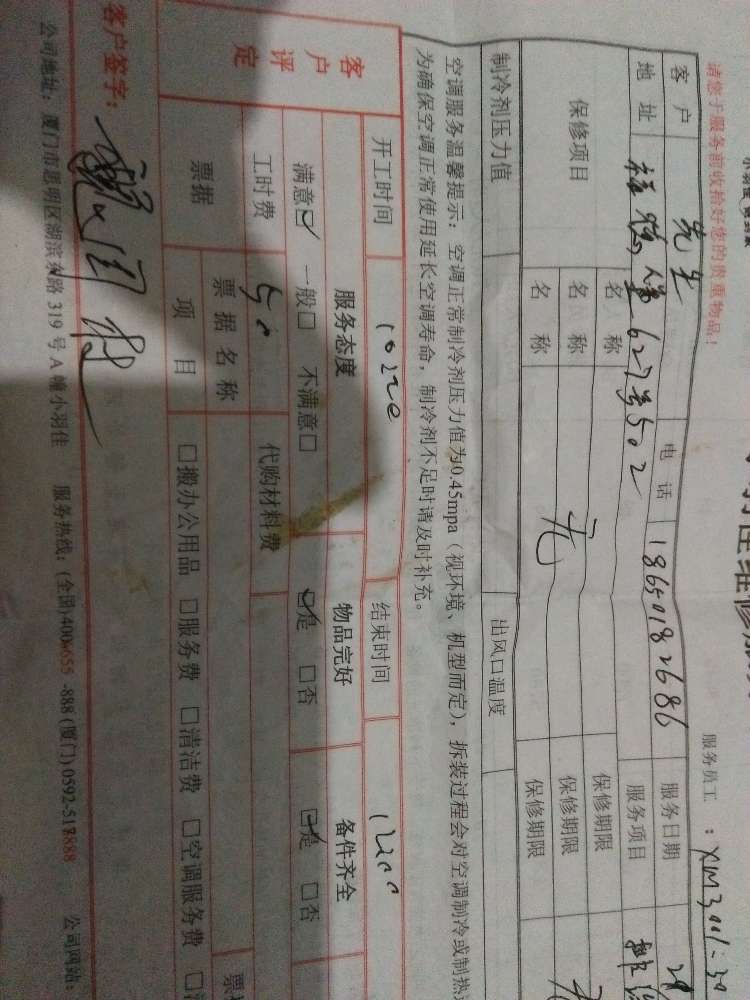 服务员工：XM3001-30
请您于服务前收拾好您的贵重物品！
客户 先生 电话 18650182686 服务日期
地址 627号502 服务项目
保修项目 名称 保修期限
名称 无 保修期限
名称 保修期限
制冷剂压力值 出风口温度
空调服务温馨提示：空调正常制冷剂压力值为0.45mpa（视环境、机型而定），拆装过程会对空调制冷或制热
为确保空调正常使用延长空调寿命，制冷剂不足时请及时补充。
客户评定
开工时间 1022 结束时间 1200
服务态度 物品完好 备件齐全
满意☑ 一般□ 不满意□ ☑是 □否 ☑是 □否
工时费 50 代购材料费
票据 票据名称
项目 □搬办公用品 □服务费 □清洁费 □空调服务费
客户签字：
公司地址：厦门市思明区湖滨东路319号A幢小羽佳 服务热线：(全国)400-655-888 (厦门)0592-518888 公司网站：